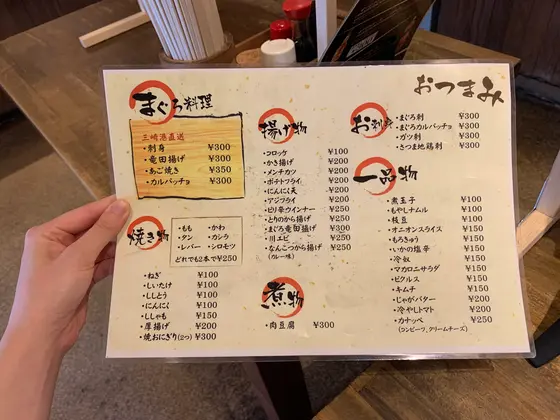 おつまみ
まぐろ料理
三崎港直送
・刺身 ¥300
・竜田揚げ ¥300
・あご焼き ¥350
・カルパッチョ ¥300
焼き物
・もも ・かわ
・タン ・カシラ
・レバー ・シロモツ
どれでも2本で¥250
・ねぎ ¥100
・しいたけ ¥100
・ししとう ¥100
・にんにく ¥100
・ししゃも ¥150
・厚揚げ ¥200
・焼おにぎり(2つ) ¥300
揚げ物
・コロッケ ¥100
・かき揚げ ¥200
・メンチカツ ¥200
・ポテトフライ ¥200
・にんにく天 ¥200
・アジフライ ¥200
・ピリ辛ウインナー ¥250
・とりのから揚げ ¥250
・まぐろ竜田揚げ ¥300
・川エビ ¥250
・なんこつから揚げ ¥250
(カレー味)
煮物
・肉豆腐 ¥300
お刺身
・まぐろ刺 ¥300
・まぐろカルパッチョ ¥300
・ガツ刺 ¥300
・さつま地鶏刺 ¥300
一品物
・煮玉子 ¥100
・もやしナムル ¥100
・枝豆 ¥150
・オニオンスライス ¥150
・もろきゅう ¥150
・いかの塩辛 ¥150
・冷奴 ¥150
・マカロニサラダ ¥150
・ピクルス ¥150
・キムチ ¥150
・じゃがバター ¥200
・冷やしトマト ¥200
・カナッペ ¥250
(コンビーフ、クリームチーズ)